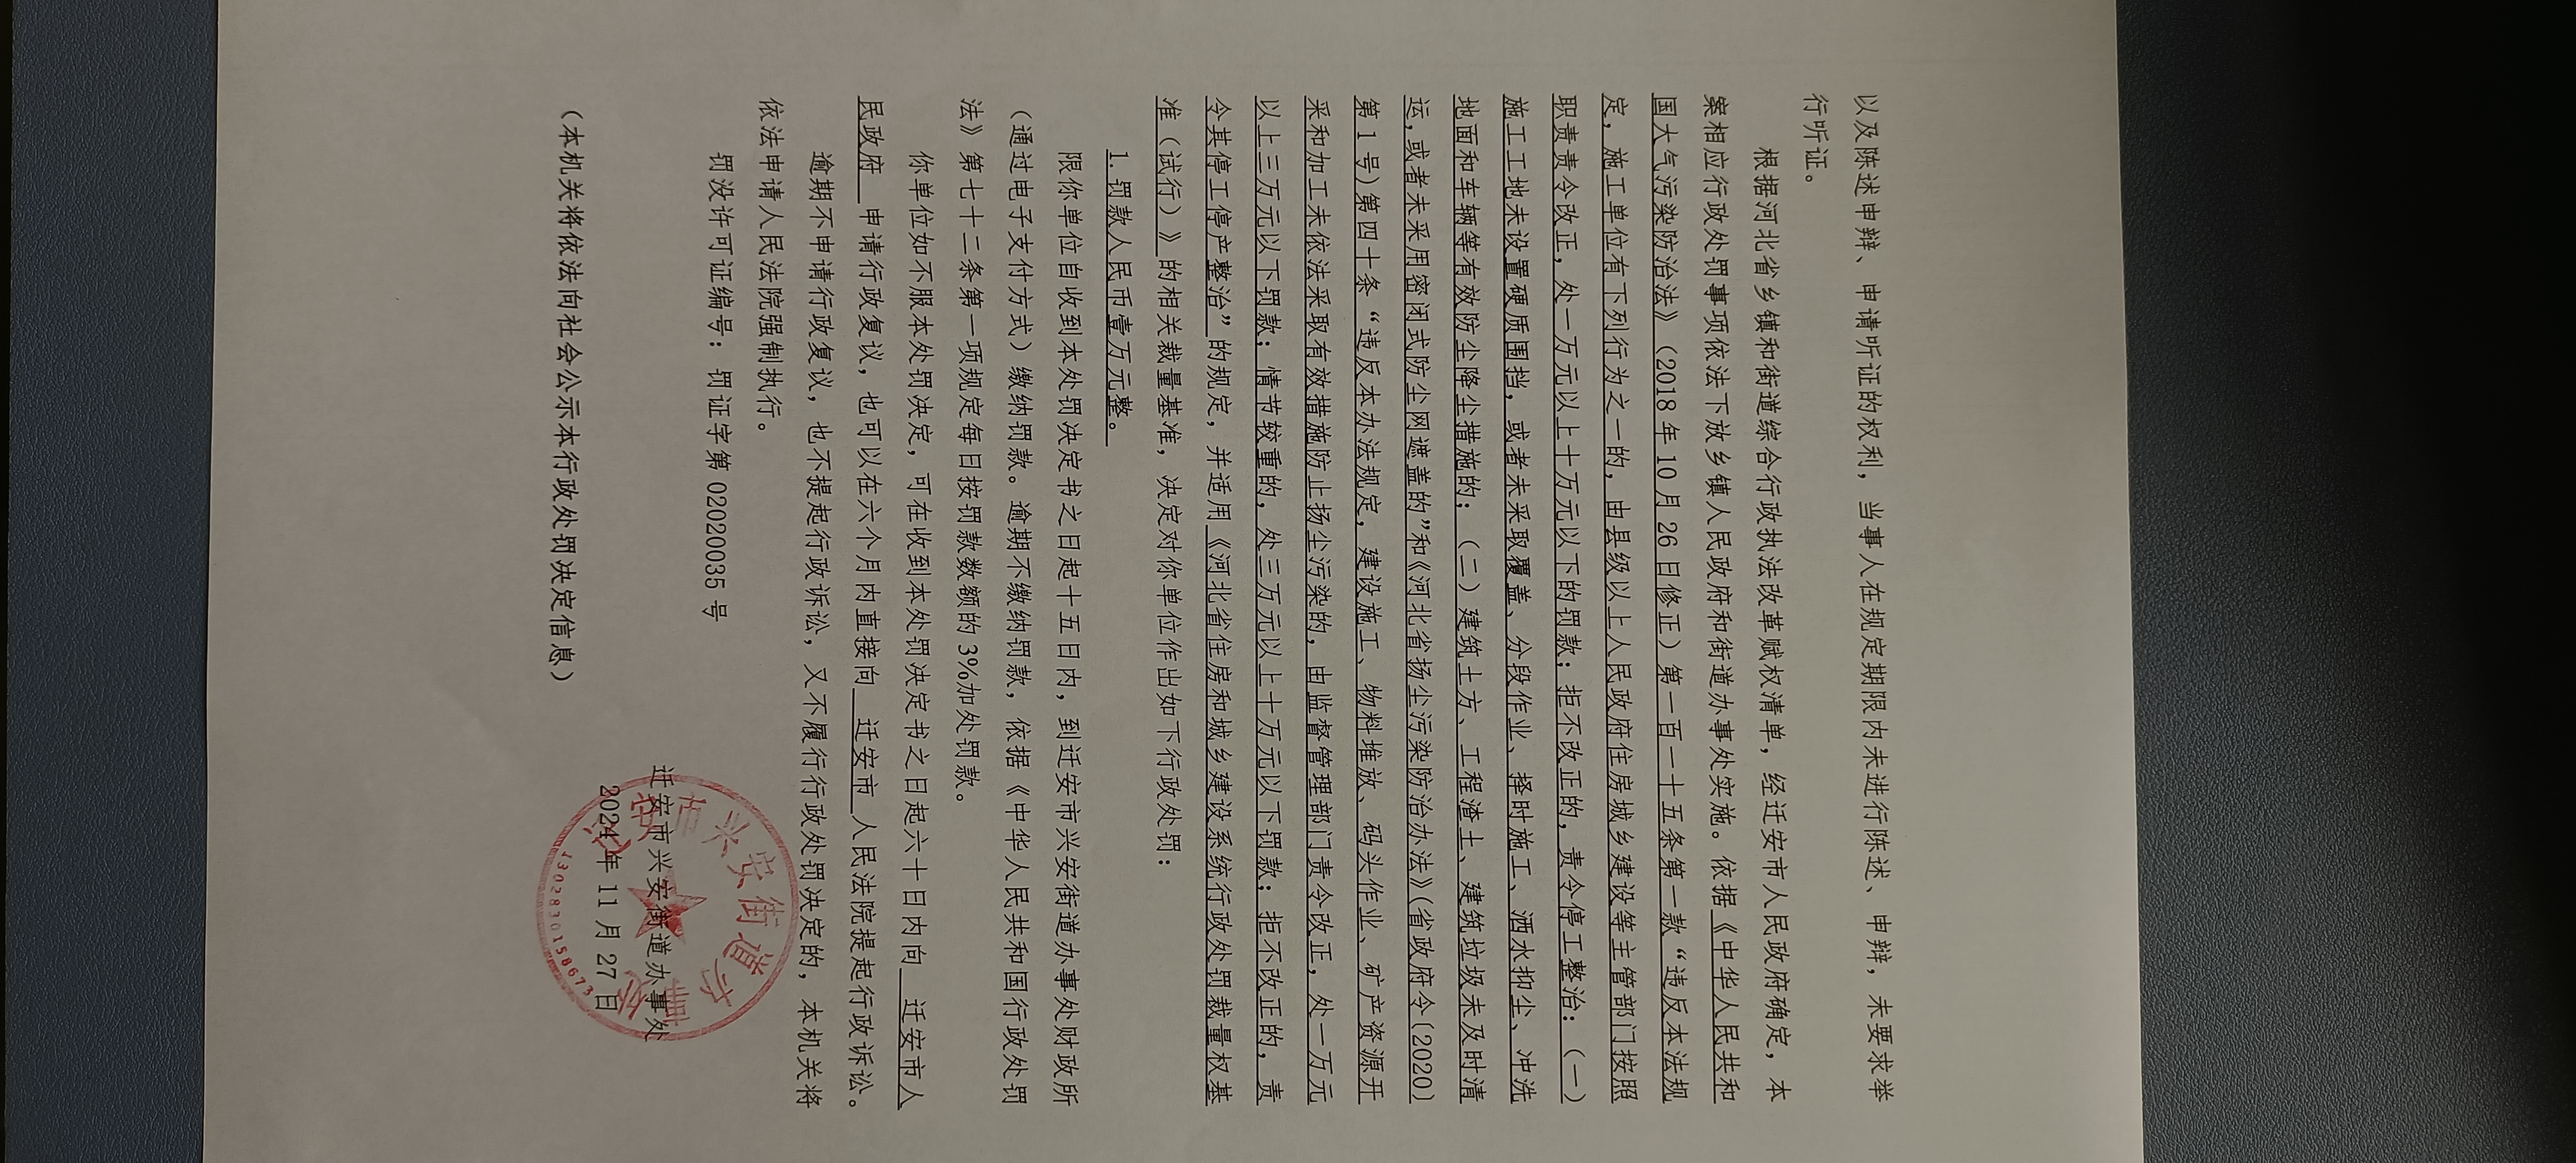 以及陈述申辩、申请听证的权利，当事人在规定期限内未进行陈述、申辩，未要求举
行听证。
根据河北省乡镇和街道综合行政执法改革赋权清单，经迁安市人民政府确定，本
案相应行政处罚事项依法下放乡镇人民政府和街道办事处实施。依据《中华人民共和
国大气污染防治法》（2018年10月26日修正）第一百一十五条第一款“违反本法规
定，施工单位有下列行为之一的，由县级以上人民政府住房城乡建设等主管部门按照
职责责令改正，处一万元以上十万元以下的罚款；拒不改正的，责令停工整治：（一）
施工工地未设置硬质围挡，或者未采取覆盖、分段作业、择时施工、洒水抑尘、冲洗
地面和车辆等有效防尘降尘措施的；（二）建筑土方、工程渣土、建筑垃圾未及时清
运,或者未采用密闭式防尘网遮盖的”和《河北省扬尘污染防治办法》(省政府令〔2020〕
第1号)第四十条“违反本办法规定，建设施工、物料堆放、码头作业、矿产资源开
采和加工未依法采取有效措施防止扬尘污染的，由监督管理部门责令改正，处一万元
以上三万元以下罚款；情节较重的，处三万元以上十万元以下罚款；拒不改正的，责
令其停工停产整治”的规定，并适用《河北省住房和城乡建设系统行政处罚裁量权基
准（试行）》的相关裁量基准，决定对你单位作出如下行政处罚：
1.罚款人民币壹万元整。
限你单位自收到本处罚决定书之日起十五日内，到迁安市兴安街道办事处财政所
（通过电子支付方式）缴纳罚款。逾期不缴纳罚款，依据《中华人民共和国行政处罚
法》第七十二条第一项规定每日按罚款数额的3%加处罚款。
你单位如不服本处罚决定，可在收到本处罚决定书之日起六十日内向 迁安市人
民政府 申请行政复议，也可以在六个月内直接向 迁安市 人民法院提起行政诉讼。
逾期不申请行政复议，也不提起行政诉讼，又不履行行政处罚决定的，本机关将
依法申请人民法院强制执行。
罚没许可证编号：罚证字第02020035号
迁安市兴安街道办事处
2024年11月27日
（本机关将依法向社会公示本行政处罚决定信息）
1302830158673